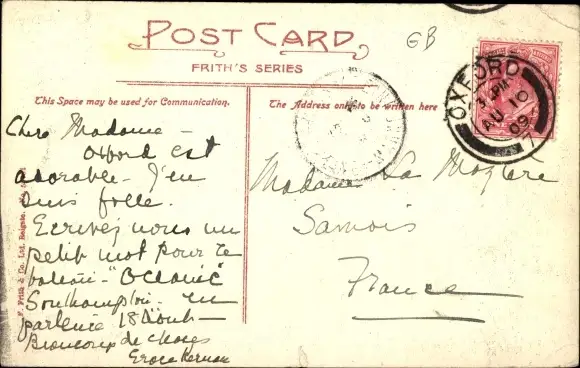 POST CARD
FRITH'S SERIES
GB
This Space may be used for Communication.
The Address only to be written here
OXFORD
3 PM
AU 10
09
7
Chère Madame –
Oxford est
adorable – J'en
suis folle.
Ecrivez nous un
petit mot pour le
bateau – "Oceanic"
Southampton – en
partance 18 Août –
Beaucoup de choses
Grace
Madame La
Samois
France
F. Frith & Co. Ltd. Reigate.